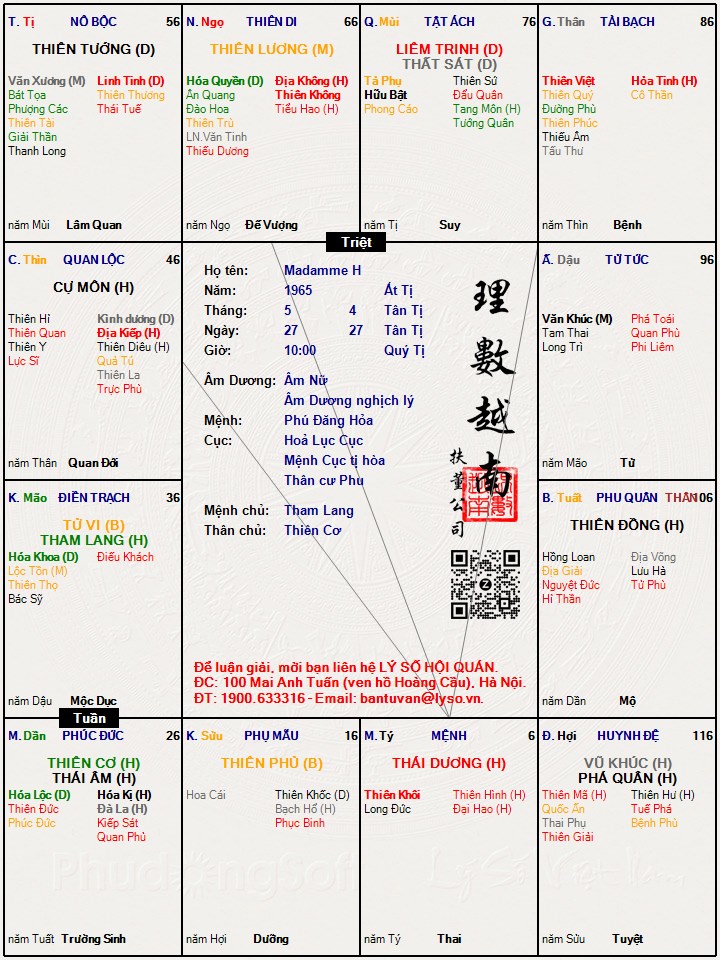 T. Tị NÔ BỘC 56
THIÊN TƯỚNG (D)
Văn Xương (M) Linh Tinh (D)
Bát Tọa Thiên Thương
Phượng Các Thái Tuế
Thiên Tài
Giải Thần
Thanh Long
năm Mùi Lâm Quan
N. Ngọ THIÊN DI 66
THIÊN LƯƠNG (M)
Hóa Quyền (D) Địa Không (H)
Ân Quang Thiên Không
Đào Hoa Tiểu Hao (H)
Thiên Trù
LN.Văn Tinh
Thiếu Dương
năm Ngọ Đế Vượng
Q. Mùi TẬT ÁCH 76
LIÊM TRINH (D)
THẤT SÁT (D)
Tả Phụ Thiên Sứ
Hữu Bật Đẩu Quân
Phong Cáo Tang Môn (H)
Tướng Quân
năm Tị Suy
G. Thân TÀI BẠCH 86
Thiên Việt Hỏa Tinh (H)
Thiên Quý Cô Thần
Đường Phù
Thiên Phúc
Thiếu Âm
Tấu Thư
năm Thìn Bệnh
Triệt
C. Thìn QUAN LỘC 46
CỰ MÔN (H)
Thiên Hỉ Kình dương (D)
Thiên Quan Địa Kiếp (H)
Thiên Y Thiên Diêu (H)
Lực Sĩ Quả Tú
Thiên La
Trực Phù
năm Thân Quan Đới
Họ tên: Madamme H
Năm: 1965 Ất Tị
Tháng: 5 4 Tân Tị
Ngày: 27 27 Tân Tị
Giờ: 10:00 Quý Tị
Âm Dương: Âm Nữ
Âm Dương nghịch lý
Mệnh: Phú Đăng Hỏa
Cục: Hoả Lục Cục
Mệnh Cục tị hòa
Thân cư Phu
Mệnh chủ: Tham Lang
Thân chủ: Thiên Cơ
理數越南
扶董公司
Để luận giải, mời bạn liên hệ LÝ SỐ HỘI QUÁN.
ĐC: 100 Mai Anh Tuấn (ven hồ Hoàng Cầu), Hà Nội.
ĐT: 1900.633316 - Email: bantuvan@lyso.vn.
Ấ. Dậu TỬ TỨC 96
Văn Khúc (M) Phá Toái
Tam Thai Quan Phù
Long Trì Phi Liêm
năm Mão Tử
K. Mão ĐIỀN TRẠCH 36
TỬ VI (B)
THAM LANG (H)
Hóa Khoa (D) Điếu Khách
Lộc Tồn (M)
Thiên Thọ
Bác Sỹ
năm Dậu Mộc Dục
B. Tuất PHU QUÂN THÂN 106
THIÊN ĐỒNG (H)
Hồng Loan Địa Võng
Địa Giải Lưu Hà
Nguyệt Đức Tử Phù
Hỉ Thần
năm Dần Mộ
Tuần
M. Dần PHÚC ĐỨC 26
THIÊN CƠ (H)
THÁI ÂM (H)
Hóa Lộc (D) Hóa Kị (H)
Thiên Đức Đà La (H)
Phúc Đức Kiếp Sát
Quan Phủ
năm Tuất Trường Sinh
K. Sửu PHỤ MẪU 16
THIÊN PHỦ (B)
Hoa Cái Thiên Khốc (D)
Bạch Hổ (H)
Phục Binh
năm Hợi Dưỡng
M. Tý MỆNH 6
THÁI DƯƠNG (H)
Thiên Khôi Thiên Hình (H)
Long Đức Đại Hao (H)
năm Tý Thai
Đ. Hợi HUYNH ĐỆ 116
VŨ KHÚC (H)
PHÁ QUÂN (H)
Thiên Mã (H) Thiên Hư (H)
Quốc Ấn Tuế Phá
Thai Phụ Bệnh Phù
Thiên Giải
năm Sửu Tuyệt
Phudongsoft
Lý Số Việt Nam